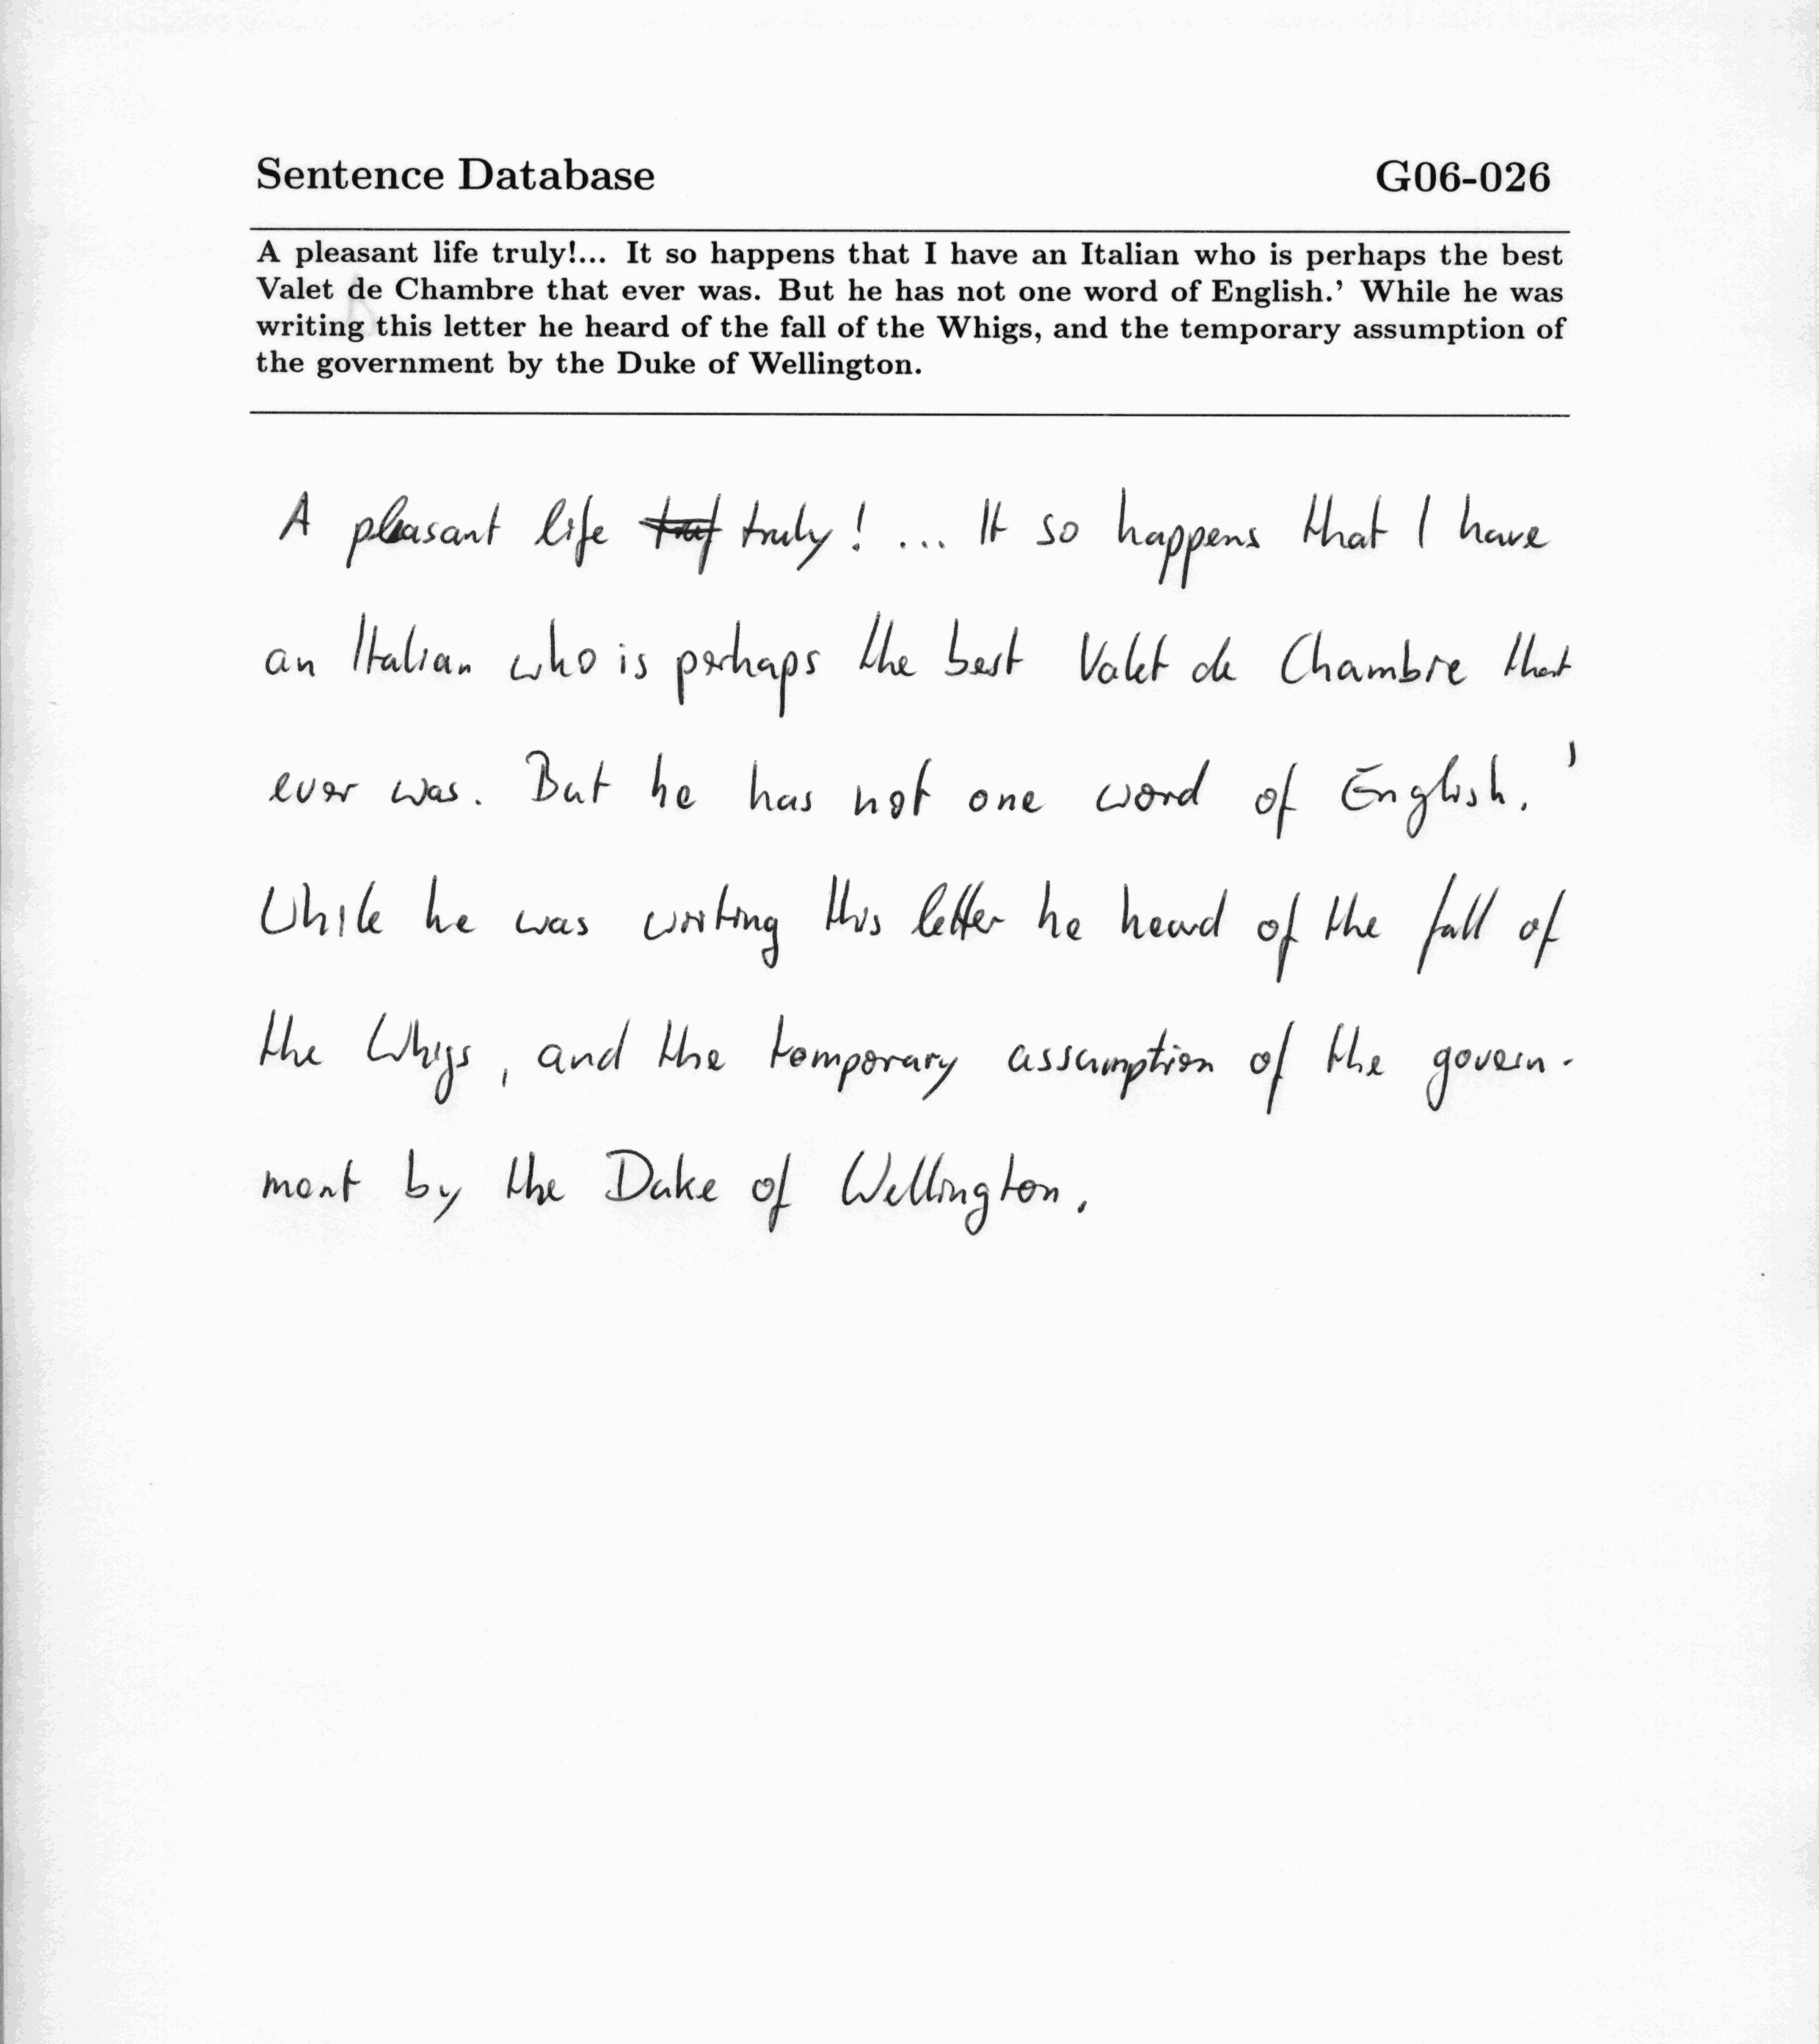 Sentence Database G06-026
A pleasant life truly!... It so happens that I have an Italian who is perhaps the best
Valet de Chambre that ever was. But he has not one word of English.' While he was
writing this letter he heard of the fall of the Whigs, and the temporary assumption of
the government by the Duke of Wellington.
A pleasant life truly! ... It so happens that I have
an Italian who is perhaps the best Valet de Chambre that
ever was. But he has not one word of English.'
While he was writing this letter he heard of the fall of
the Whigs, and the temporary assumption of the govern-
ment by the Duke of Wellington.